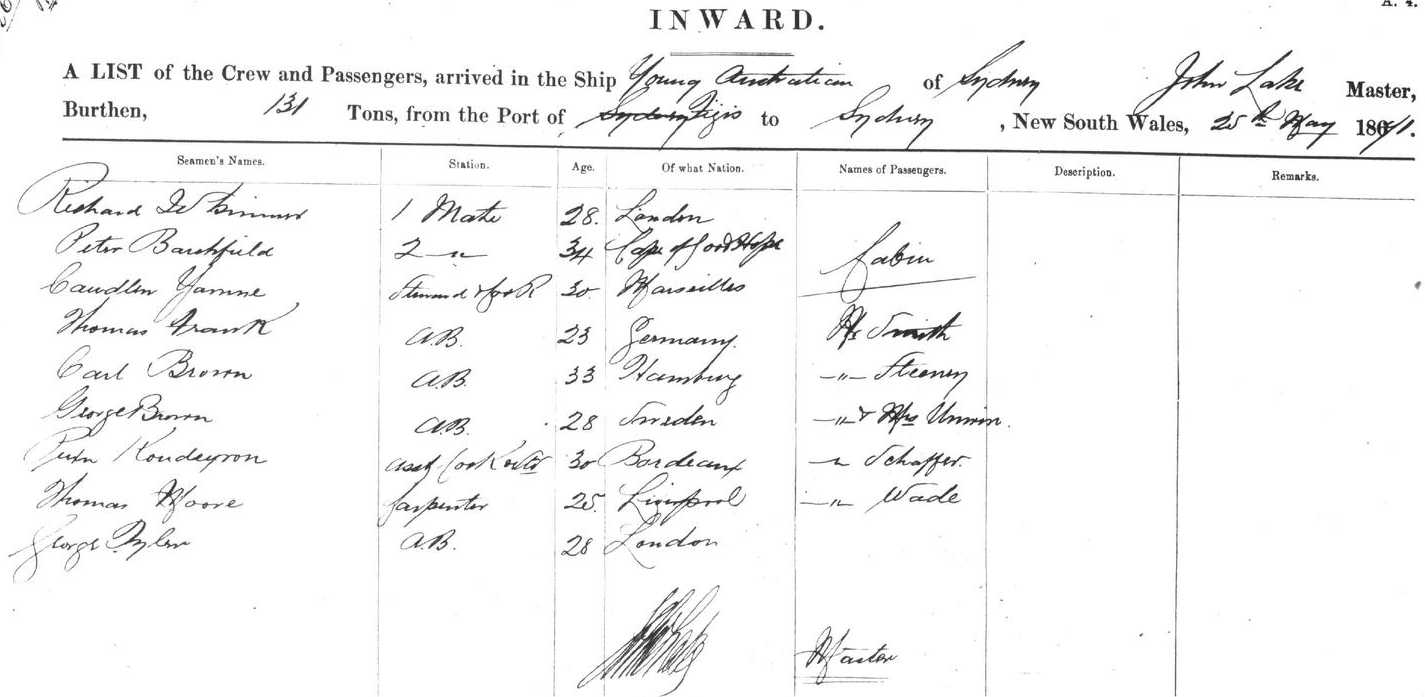 A. 4.
INWARD.
A LIST of the Crew and Passengers, arrived in the Ship Young Australian of Sydney John Lake Master,
Burthen, 131 Tons, from the Port of Sydney Fijis to Sydney, New South Wales, 25th May 1871.
Seamen's Names. Station. Age. Of what Nation. Names of Passengers. Description. Remarks.
Richard 1 Mate 28. London
Peter Barchfield 2 " 34 Cape of Good Hope Cabin
Steward & Cook 30 Marseilles
Thomas Frank A.B. 23 Germany. Mr Smith
Carl Brown A.B. 33 Hamburg " Steeney
George Brown A.B. 28 Sweden " & Mrs Unwin.
Asst Cook 30 Bordeaux " Schaffer.
Thomas Moore Carpenter 25. Liverpool " Wade
George A.B. 28 London
John Lake Master